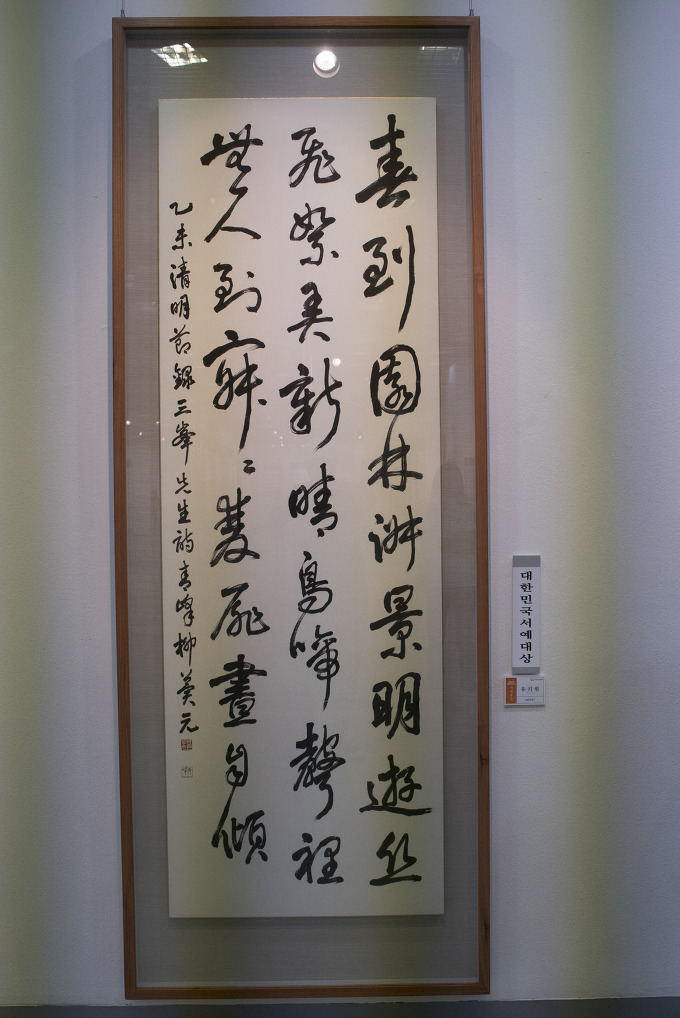 春到園林淑景明遊丝
飛絮弄新晴鳥啼聲裡
無人到寂〻雙扉晝自傾
乙未清明節錄三峯先生詩青峰柳冀元
대한민국서예대상
유기원